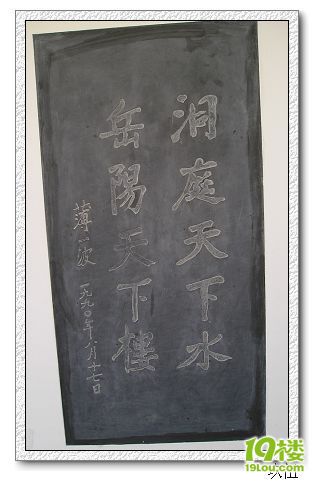 洞庭天下水
岳陽天下樓
薄一波 一九九〇年八月十七日
19楼
19lou.com